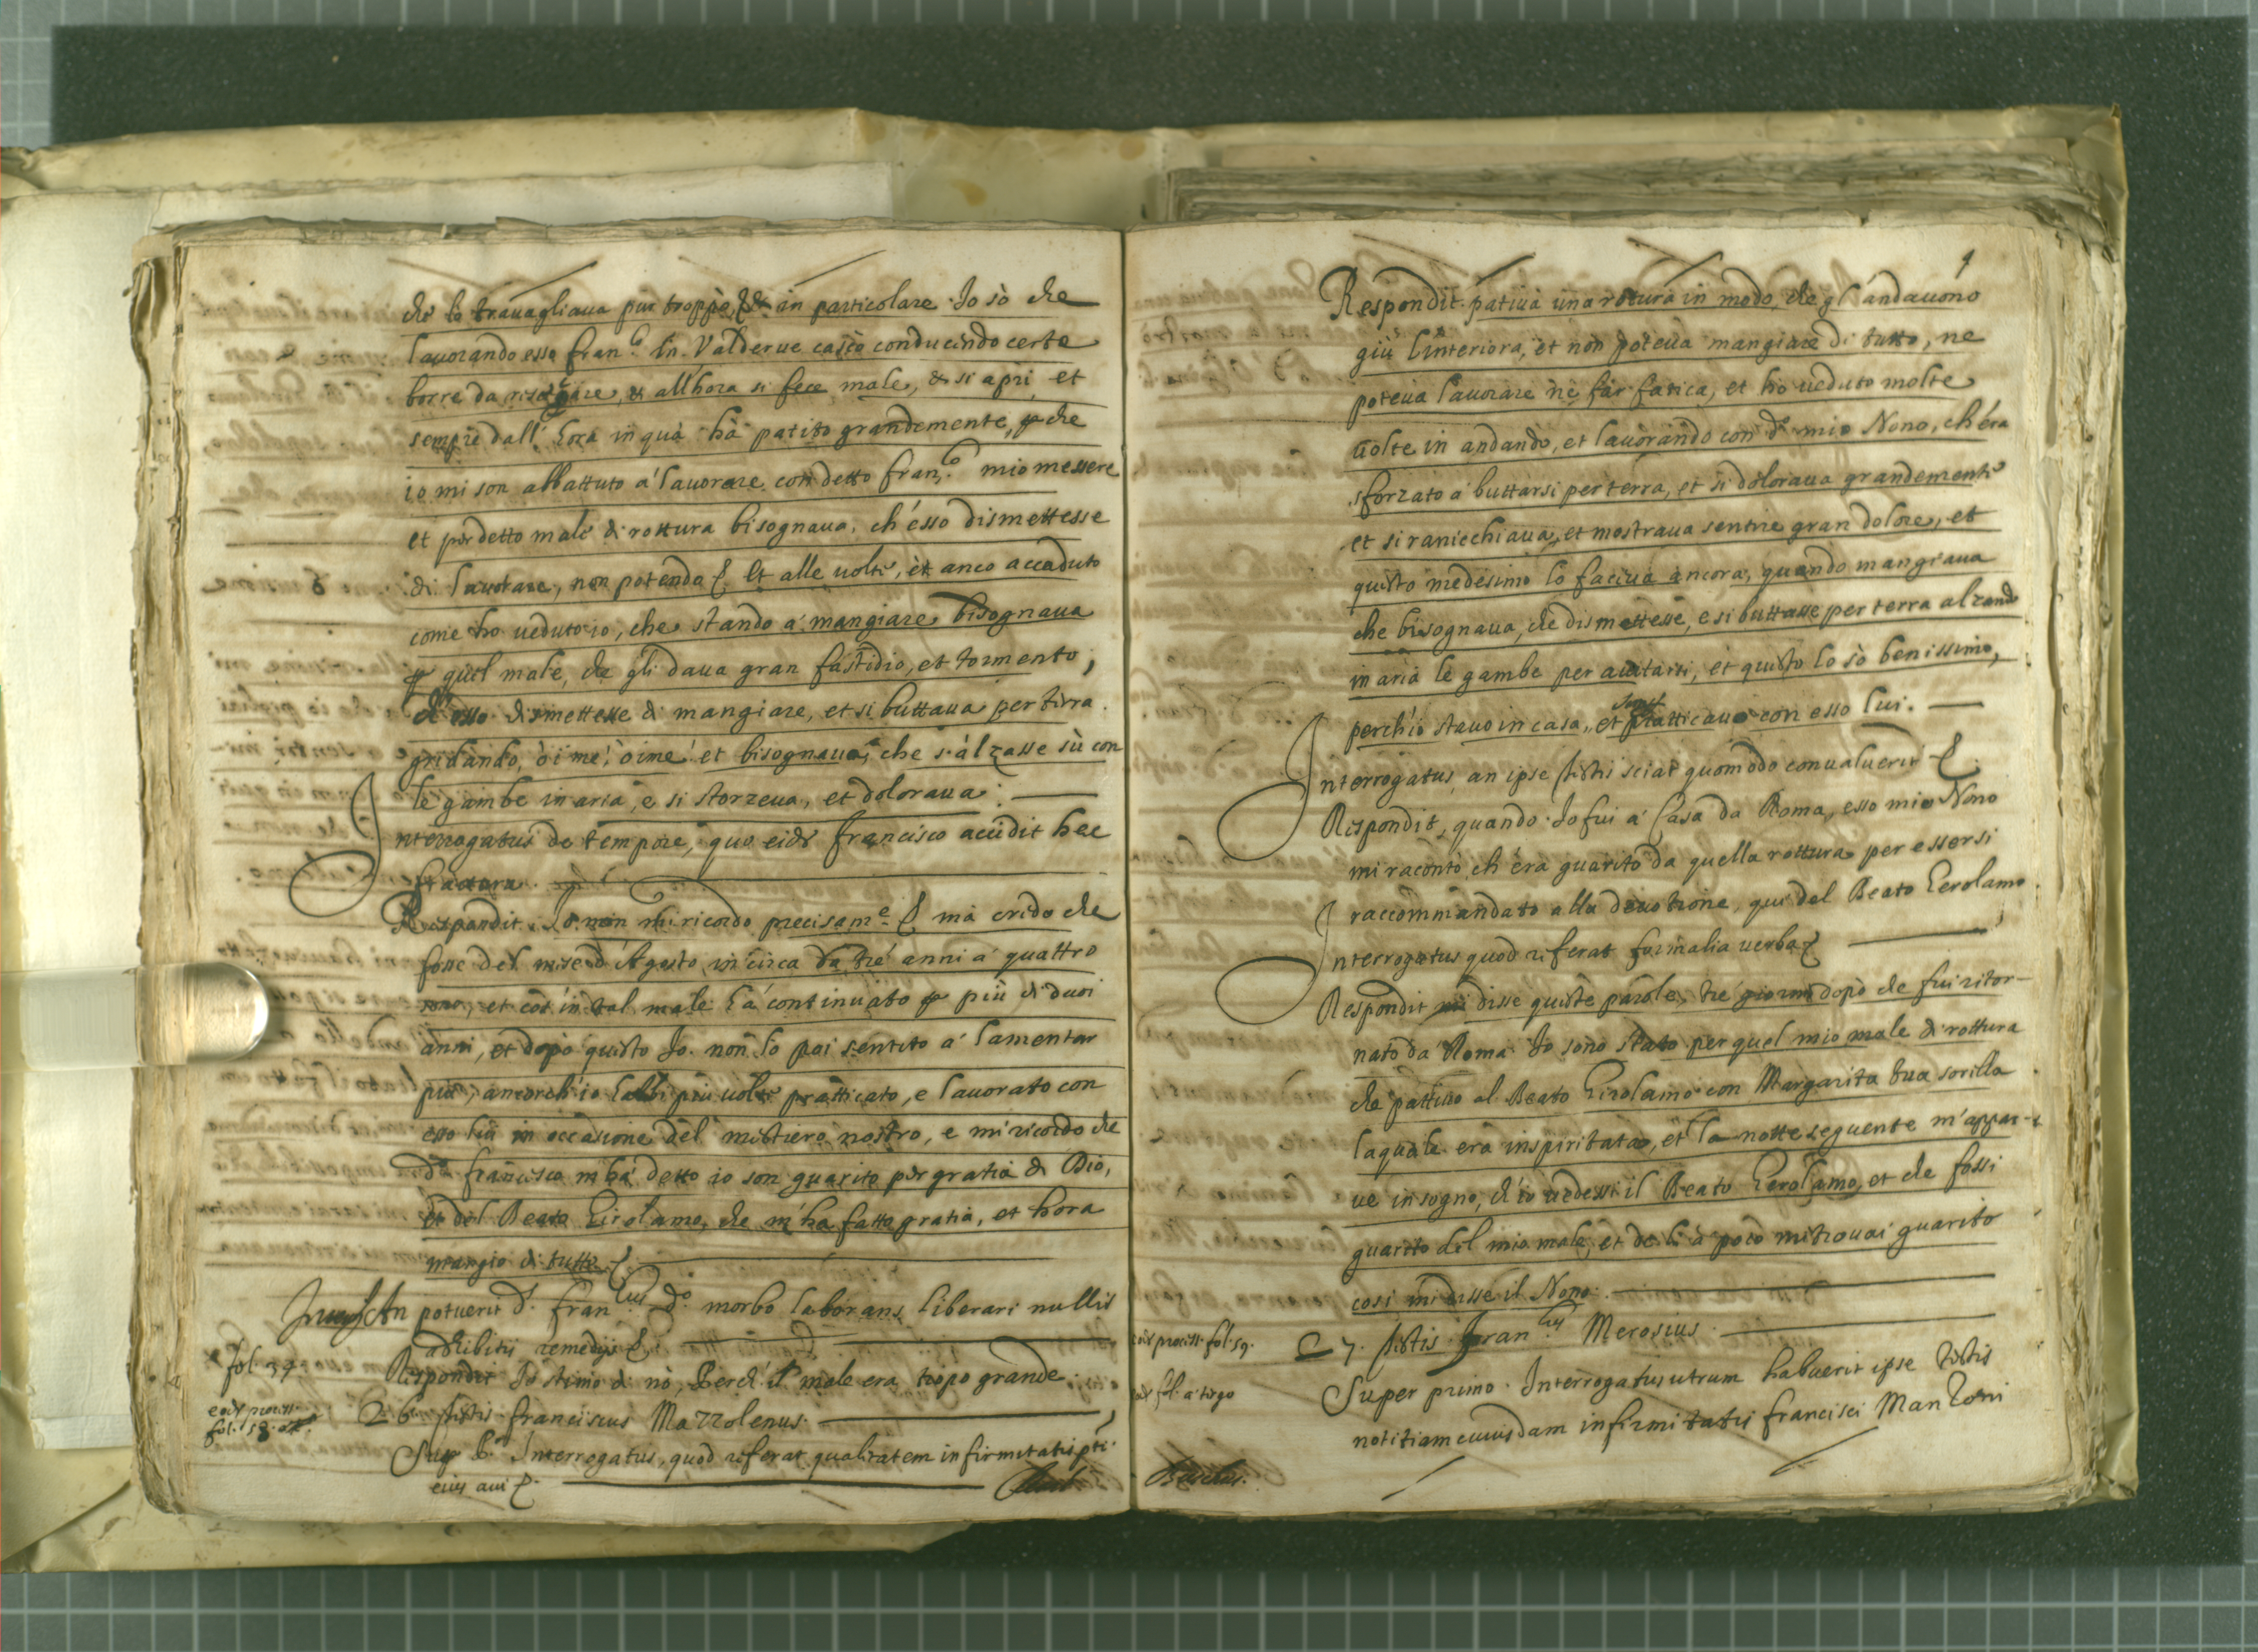 che lo trauagliaua pur troppo, & in particolare. Io sò che
lauorando esso Fran.co in Valderue cascò conducendo certe
borre da , & all'hora si fece male, & si aprì, et
sempre dall'hora in quà hà patito grandemente, p che
io mi son abbattuto á lauorare con detto Fran.co mio messere
et per detto male di rottura bisognaua, ch'esso dismettesse
di lauorare, non potendo Et alle uolte, è anco accaduto
come ho ueduto io, che stando á mangiare bisognaua
p quel male, che gli daua gran fastidio, et tormento,
ch'esso dismettesse di mangiare, et si buttaua per terra
gridando, òimé, òimé et bisognaua, che s'alzasse sù con
le gambe in aria, e si storzeua, et doloraua.
Interrogatus de tempore, quo eid Francisco accidit hec
fractura.
Respondit. Io non mi ricordo precisam.e mà credo che
fosse del mese d'Agosto in circa da tré anni á quattro
sono, et con tal male há continuato p più di duoi
anni, et dopò questo Io non l'ho poi sentito á lamentar
più, ancorch'io l'habbi più uolte pratticato, e lauorato con
esso lui in occasione del mestiero nostro, e mi ricordo che
d.o Francesco m'há detto io son guarito per gratia di Dio,
et del Beato Girolamo, che m'ha fatto gratia, et hora
mangio di tutto
An potuerit d. Fran.cus d.o morbo laborans liberari nullis
adhibitis remedijs
fol. 39 Respondit Io stimo di nò, Perch'il male era tropo grande.
eod process. fol. 58 26 testis Franciscus Mazzolenus.
Sup p.o Interrogatus, quod referat qualitatem infirmitatis pti
eius aui
1
Respondit. patiua una rotura in modo, che gl'andauono
giù l'interiora, et non poteua mangiare di tutto, ne
poteua lauorare ne far fatica, et ho ueduto molte
uolte in andando, et lauorando con d.o mio Nono, ch'era
sforzato a buttarsi per terra, et si doloraua grandemente
et si raniechiaua, et mostraua sentire gran dolore, et
questo medesimo lo faceua ancora, quando mangiaua
che bisognaua, che dismettesse, e si buttasse per terra alzando
in aria le gambe per aiutarsi, et questo lo sò benissimo,
perch'io stauo in casa, et pratticauo con esso lui.
Interrogatus, an ipse testis sciat quomodo conualuerit
Respondit, quando Io fui á Casa da Roma, esso mio Nono
mi racontò, ch'era guarito da quella rottura per essersi
raccommandato alla deuotione, qui del Beato Gerolamo
Interrogatus quod referat formalia uerba
Respondit mi disse queste parole, tré giorni dopò che fui ritor-
nato da Roma. Io sono stato per quel mio male di rottura
che pattiuo al Beato Girolamo con Margarita tua sorella
la quale era inspiritata, et la notte seguente m'appar-
ue in sogno, ch'io uedessi il Beato Gerolamo, et che fossi
guarito del mio male, et de li á poco mi trouai guarito
cosi mi disse il Nono.
eod process. fol. 59. 27. testis Fran.cus Merosius.
fol. á tergo Super primo. Interrogatus utrum habuerit ipse testis
notitiam cuiusdam infirmitatis Francisci Manzoni